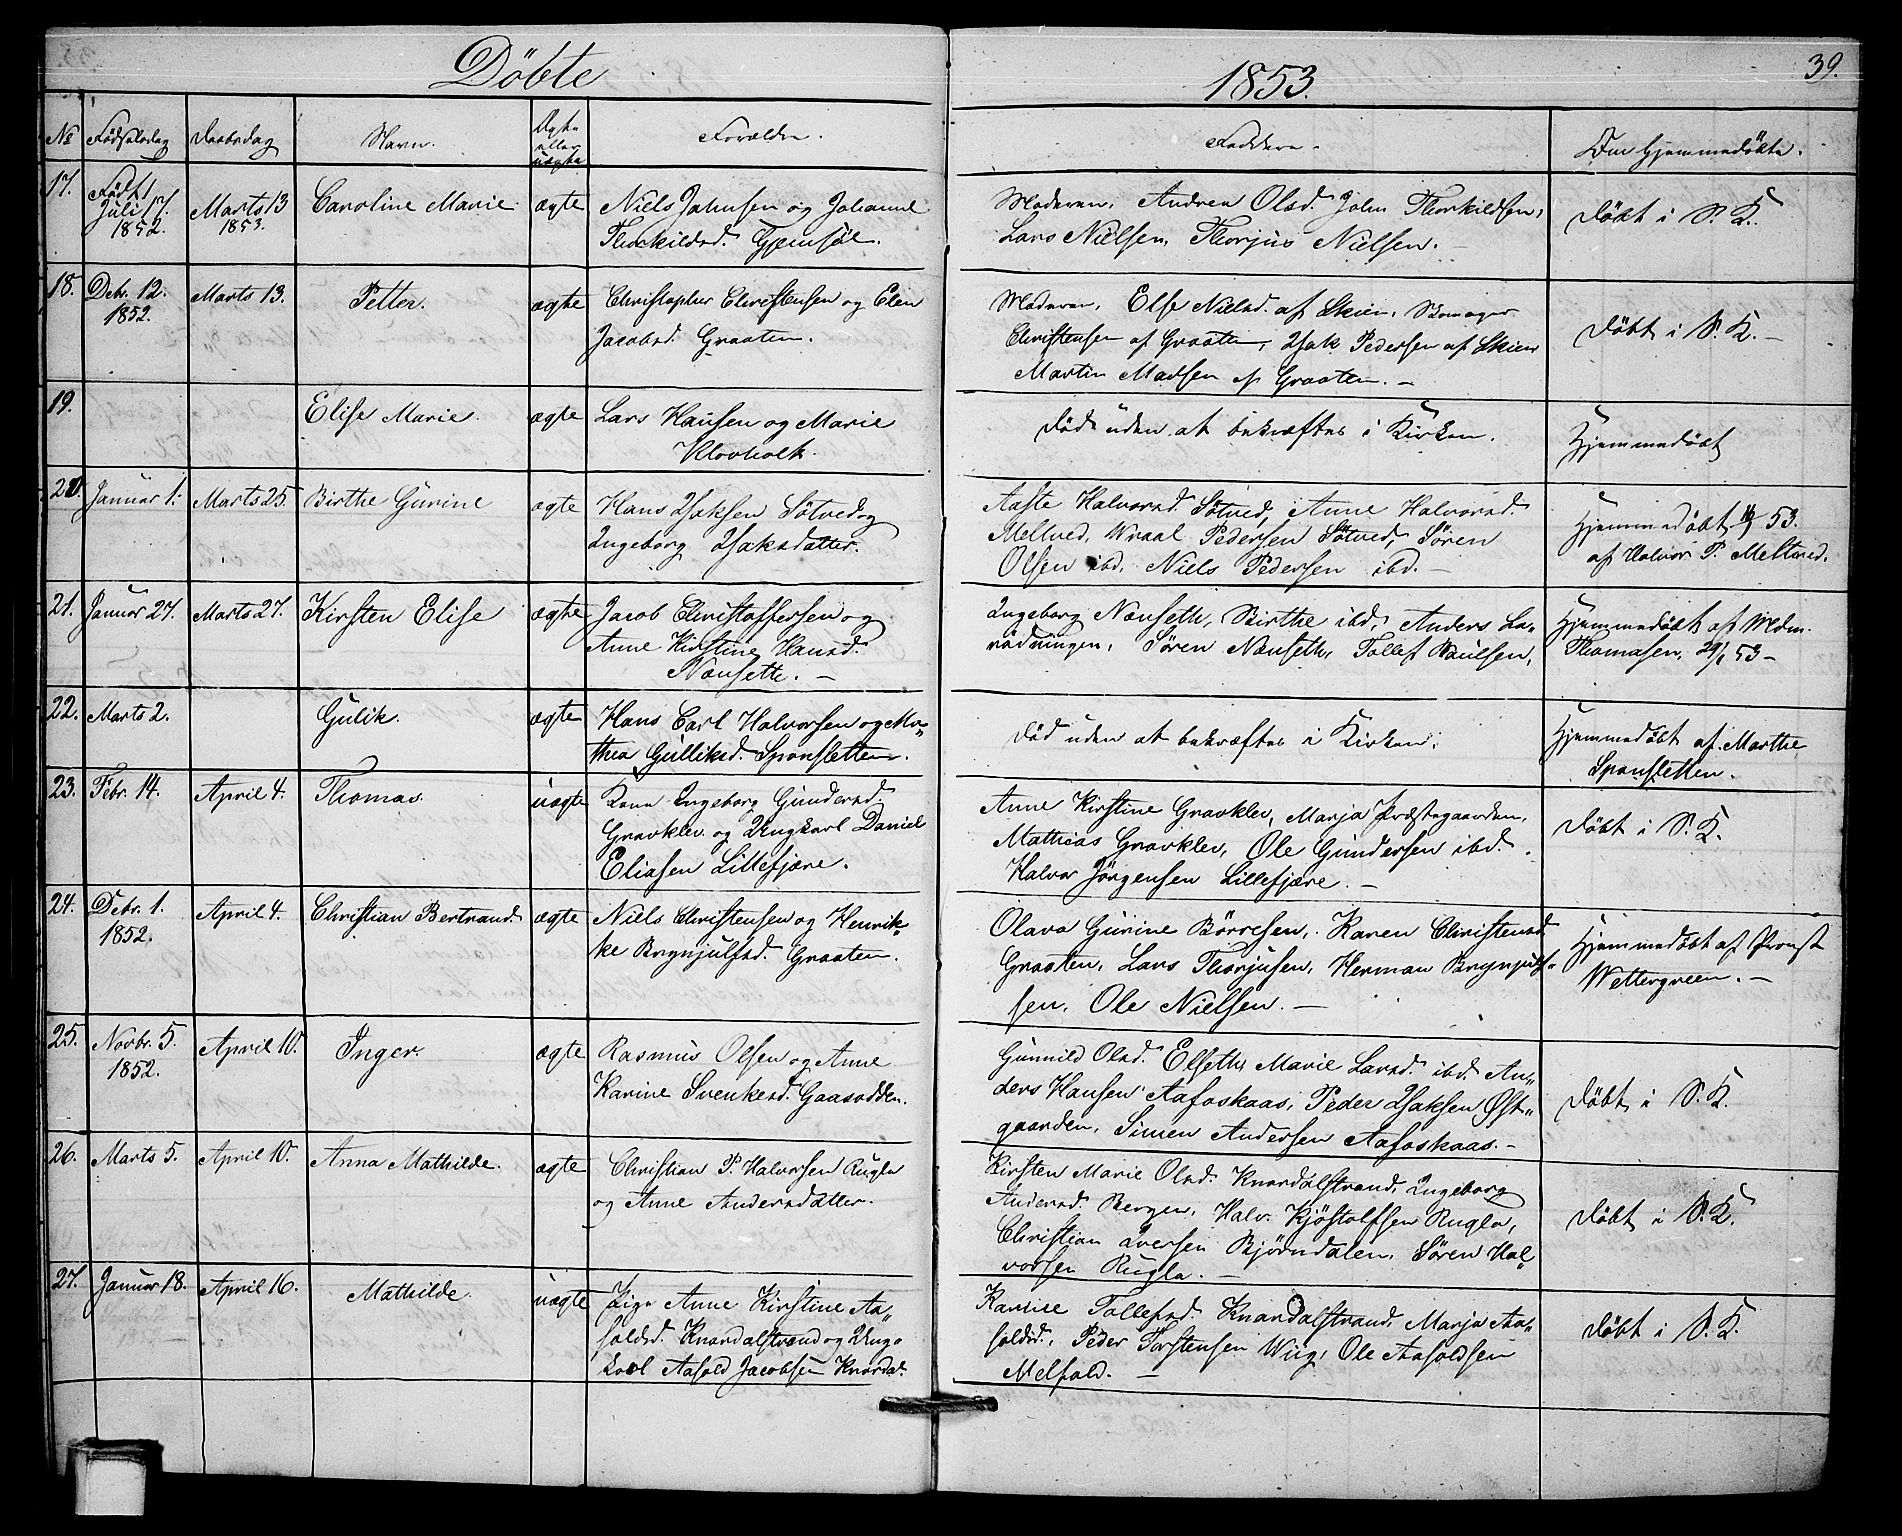 Döbte
1853.
39.
No Födselsdag Daabsdag Navn. Ægte eller uægte Forældre. Faddere. Om hjemmedöbte.
17. Född Juli 17. 1852. Marts 13 1853. Caroline Marie ægte Niels Jahnsen og Johanne
Thorkildsd. Gjemsöe.
Moderen, Andrea Olsd. John Thorkildsen,
Lars Nielsen, Thorjus Nielsen.
Döbt i S. K.
18. Debr. 12. 1852. Marts 13. Petter. ægte Christopher Christensen og Elen
Jacobsd. Graaten.
Moderen, Else Nielsd. af Skien,
Christensen af Graaten, Isak Pedersen af Skien
Martin Madsen af Graaten. —
Döbt i S. K. —
19. Elise Marie. ægte Lars Hansen og Marie
Klovholt.
Död uden at bekræftes i Kirken.
Hjemmedöbt
20. Januar 1. Marts 25. Birthe Gurine ægte Hans Isaksen Sötved og
Ingeborg Isaksdatter.
Aaste Halvorsd. Sötved, Anne Halvorsd
Meltved, Wraal Pedersen Sötved, Sören
Olsen ibd. Niels Pedersen ibd. —
Hjemmedöbt 53.
af Halvor P. Meltved.
21. Januar 27. Marts 27. Kirsten Elise ægte Jacob Christoffersen og
Anne Kirstine Hansd.
Nenseth. —
Ingeborg Nenseth, Birthe ibd, Anders La-
rödningen, Sören Nenseth, Tollef Paulsen,
Hjemmedöbt af Mdm.
Thomasen, 29/1 53 —
22. Marts 2. Gulik. ægte Hans Carl Halvorsen og Ma-
thea Gulliksd. Sponsletten.
Död uden at bekræftes i Kirken.
Hjemmedöbt af Marthe
Sponsletten.
23. Febr. 14. April 4. Thomas. uægte Kone Ingeborg Gundersd.
Gravklev og Ungkarl Daniel
Eliasen Lillefjære.
Anne Kirstine Gravklev, Marja Præstegaarden,
Mathias Gravklev, Ole Gundersen ibd.
Halvor Jörgensen Lillefjære. —
Döbt i S. K.
24. Debr. 1. 1852. April 4. Christian Bertrand. ægte Niels Christensen og Henrik-
ke Brynjulfsd. Graaten.
Olava Gurine Börresen, Karen Christensd.
Graaten, Lars Thorjusen, Herman Brynjulf-
sen, Ole Nielsen. —
Hjemmedöbt af Provst
Wettergreen. —
25. Novbr. 5. 1852. April 10. Inger. ægte Rasmus Olsen og Anne
Karine Svenkesd. Gaasodden.
Gunnild Olsd. Elseth, Marie Larsd. ibd. An-
ders Hansen Aafoskaas, Peder Isaksen Øst-
gaarden, Simen Andersen Aafoskaas. —
Döbt i S. K.
26. Marts 5. April 10. Anna Mathilde. ægte Christian P. Halvorsen Rugla
og Anne Andersdatter.
Kirsten Marie Olsd. Knardalstrand, Ingeborg
Andersd. Bergen, Halv. Kjöstolfsen Rugla,
Christian Iversen Björndalen, Sören Hal-
vorsen Rugla. —
Döbt i S. K.
27. Januar 18. April 16. Mathilde. uægte Pige Anne Kirstine Aa-
soldsd. Knardalstrand og Ung-
karl Aasold Jacobsen Knardal.
Karine Tollefsd. Knardalstrand, Marja Aa-
soldsd., Peder Torstensen Wiig, Ole Aasoldsen
Melfald. —
Döbt i S. K.